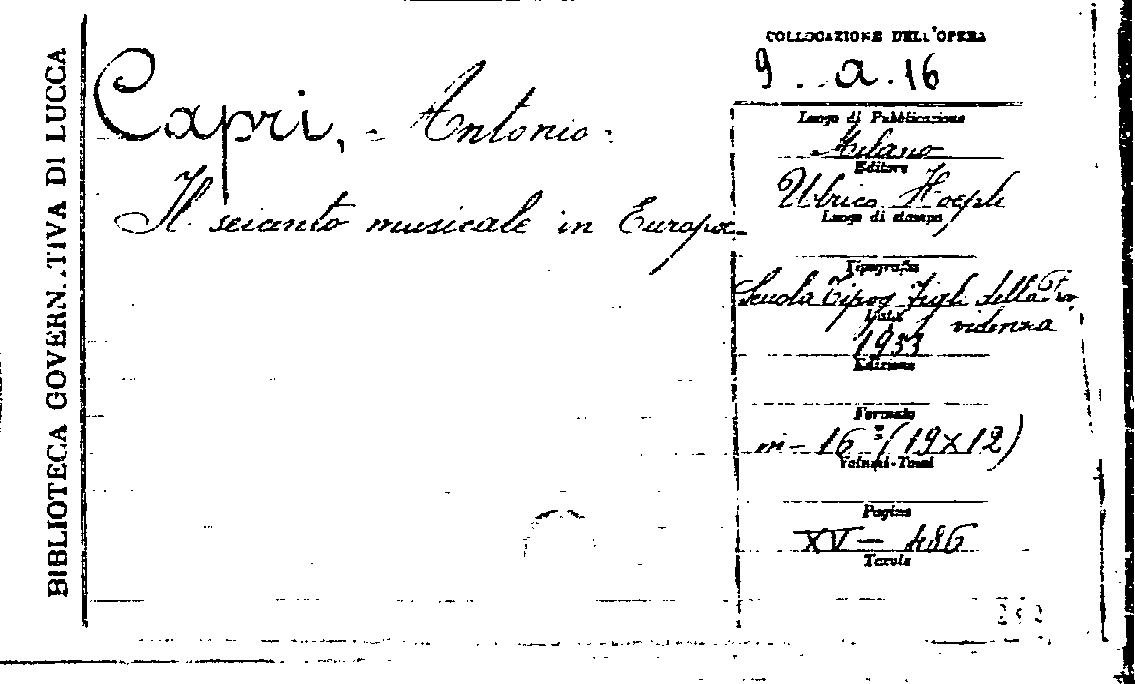 BIBLIOTECA GOVERN..TIVA DI LUCCA
COLLOCAZIONE DELL'OPERA
9 . . a . 16
Capri, - Antonio -
Il seicento musicale in Europa -
Luogo di Pubblicazione
Milano
Editore
Ulrico Hoepli
Luogo di stampa
Tipografia
Scuola Tipog Figli della Prov
videnza
Data
1933
Edizione
Formato
in - 16º (19×12)
Volumi-Tomi
Pagine
XV - 486
Tavole